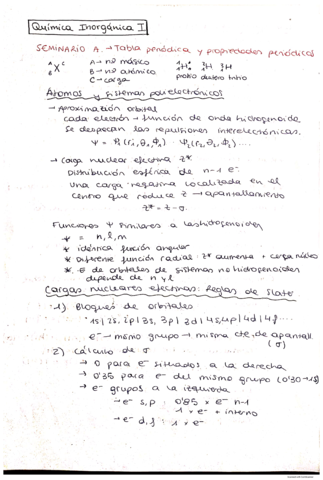 Química Inorgánica I
SEMINARIO A. → Tabla periódica y propiedades periódicas
A X C B
A → nº másico
B → nº atómico
C → carga
¹₁H⁺ ²₁H ³₁H
protio deuterio tritio
Átomos y sistemas polielectrónicos
→ Aproximación orbital
cada electrón → función de onda hidrogenoide
Se desprecian las repulsiones interelectrónicas.
Ψ = Ψ₁(r₁, θ₁, Φ₁) · Ψ₂(r₂, θ₂, Φ₂) ...
→ Carga nuclear efectiva Z*
Distribución esférica de n-1 e⁻
Una carga negativa localizada en el
centro que reduce Z → apantallamiento
Z* = Z - σ
Funciones Ψ similares a las hidrogenoides
Ψ = n, l, m
* idéntica función angular
* Diferente función radial: Z* aumenta + carga núcleo
* E de orbitales de sistemas no hidrogenoides
depende de n y l
Cargas nucleares efectivas: Reglas de Slater
· 1) Bloques de orbitales
1s | 2s, 2p | 3s, 3p | 3d | 4s, 4p | 4d | 4f ...
e⁻ → mismo grupo → misma cte. de apantall.
(σ)
2) Cálculo de σ
→ 0 para e⁻ situados a la derecha
→ 0'35 para e⁻ del mismo grupo (0'30 → 1s)
→ e⁻ grupos a la izquierda
→ e⁻ s, p : 0'85 × e⁻ n-1
1 × e⁻ + interno
→ e⁻ d, f : 1 × e⁻